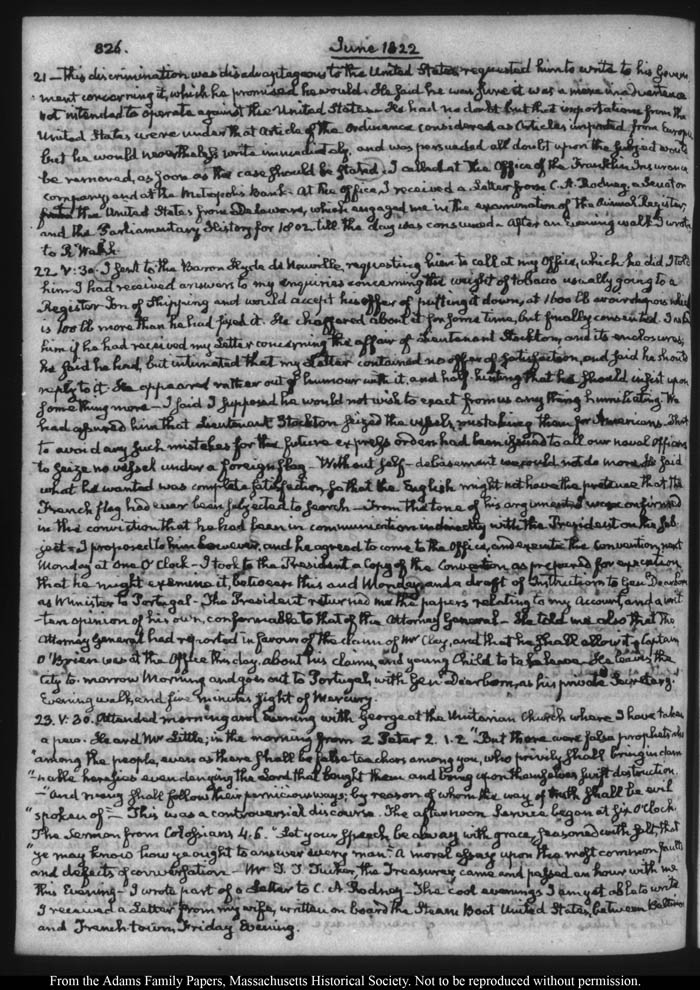 826. June 1822
21 — this discrimination was disadvantageous to the United States requested him to write to his Govern
ment concerning it, which he promised he would. He said he was sure it was a mere inadvertence
not intended to operate against the United States. He had no doubt but that importations from the
United States were under that Article of the Ordinance considered as Articles imported from Europe
but he would nevertheless write immediately, and was persuaded all doubt upon the subject would
be removed, as soon as the case should be stated. I called at the Office of the Franklin Insurance
company and at the Metropolis Bank. At the office, I received a Letter from C. A. Rodney, a Senator
from the United States from Delaware, which engaged me in the examination of the Annual Register,
and the Parliamentary History for 1802 till the day was consumed. After an evening walk I wrote
to R. Walsh.
22. V:30. I sent to the Baron Hyde de Neuville, requesting him to call at my Office, which he did. I told
him I had received answers to my enquiries concerning the weight of tobacco usually going to a
Register Ton of Shipping and would accept his offer of putting it down, at 1600 lb avoirdupois which
is 100 lb more than he had fixed it. He chaffered about it for some time, but finally consented. I asked
him if he had received my Letter concerning the affair of Lieutenant Stockton, and its enclosures;
he said he had, but intimated that my Letter contained no offer of satisfaction, and said he should
reply to it. He appeared rather out of humour with it, and half-hinting that he should insist upon
something more — I said I supposed he would not wish to exact from us any thing humiliating. We
had assured him that Lieutenant Stockton seized the vessels, mistaking them for Americans. That
to avoid any such mistakes for the future express orders had been issued to all our naval Officers
to seize no vessel under a foreign flag — Without self-debasement we could not do more. He said
what he wanted was complete satisfaction, so that the English might not have the pretence that the
French flag had ever been subjected to search — From the tone of his argument I was confirmed
in the conviction that he had been in communication indirectly with the President on this sub
ject. I proposed to him however, and he agreed to come to the Office, and execute the Convention, next
Monday at One O'Clock — I took to the President a Copy of the Convention as prepared for execution
that he might examine it, between this and Monday, and a draft of Instructions to Genl. Dearborn
as Minister to Portugal — The President returned me the papers relating to my Account, and a writ
ten opinion of his own, conformable to that of the Attorney General — He told me also that the
Attorney General had reported in favour of the claim of Mr Clay, and that he shall allow it. Captain
O'Brien was at the Office this day, about his claims, and young Child to take leave. He leaves the
City to-morrow Morning and goes out to Portugal, with Genl. Dearborn, as his private Secretary.
Evening walk, and five minutes sight of Mercury.
23. V. 30. Attended morning and evening with George at the Unitarian Church where I have taken
a pew. Heard Mr Little; in the morning from 2 Peter 2. 1. 2 "But there were false prophets also
"among the people, even as there shall be false teachers among you, who privily shall bring in dam
"nable heresies even denying the Lord that bought them and bring upon themselves swift destruction.
— "And many shall follow their pernicious ways; by reason of whom the way of truth shall be evil
"spoken of" — This was a controversial discourse. The afternoon Service began at Six O'Clock.
The Sermon from Colossians 4. 6. "Let your speech be alway with grace, seasoned with salt, that
"ye may know how ye ought to answer every man." A moral essay upon the most common faults
and defects of conversation — Mr T. T. Tucker, the Treasurer, came and passed an hour with me
this Evening — I wrote part of a Letter to C. A. Rodney — The cool evenings I am yet able to write
I received a Letter from my wife, written on board the Steam Boat United States, between Baltimore
and French-town, Friday Evening.
From the Adams Family Papers, Massachusetts Historical Society. Not to be reproduced without permission.